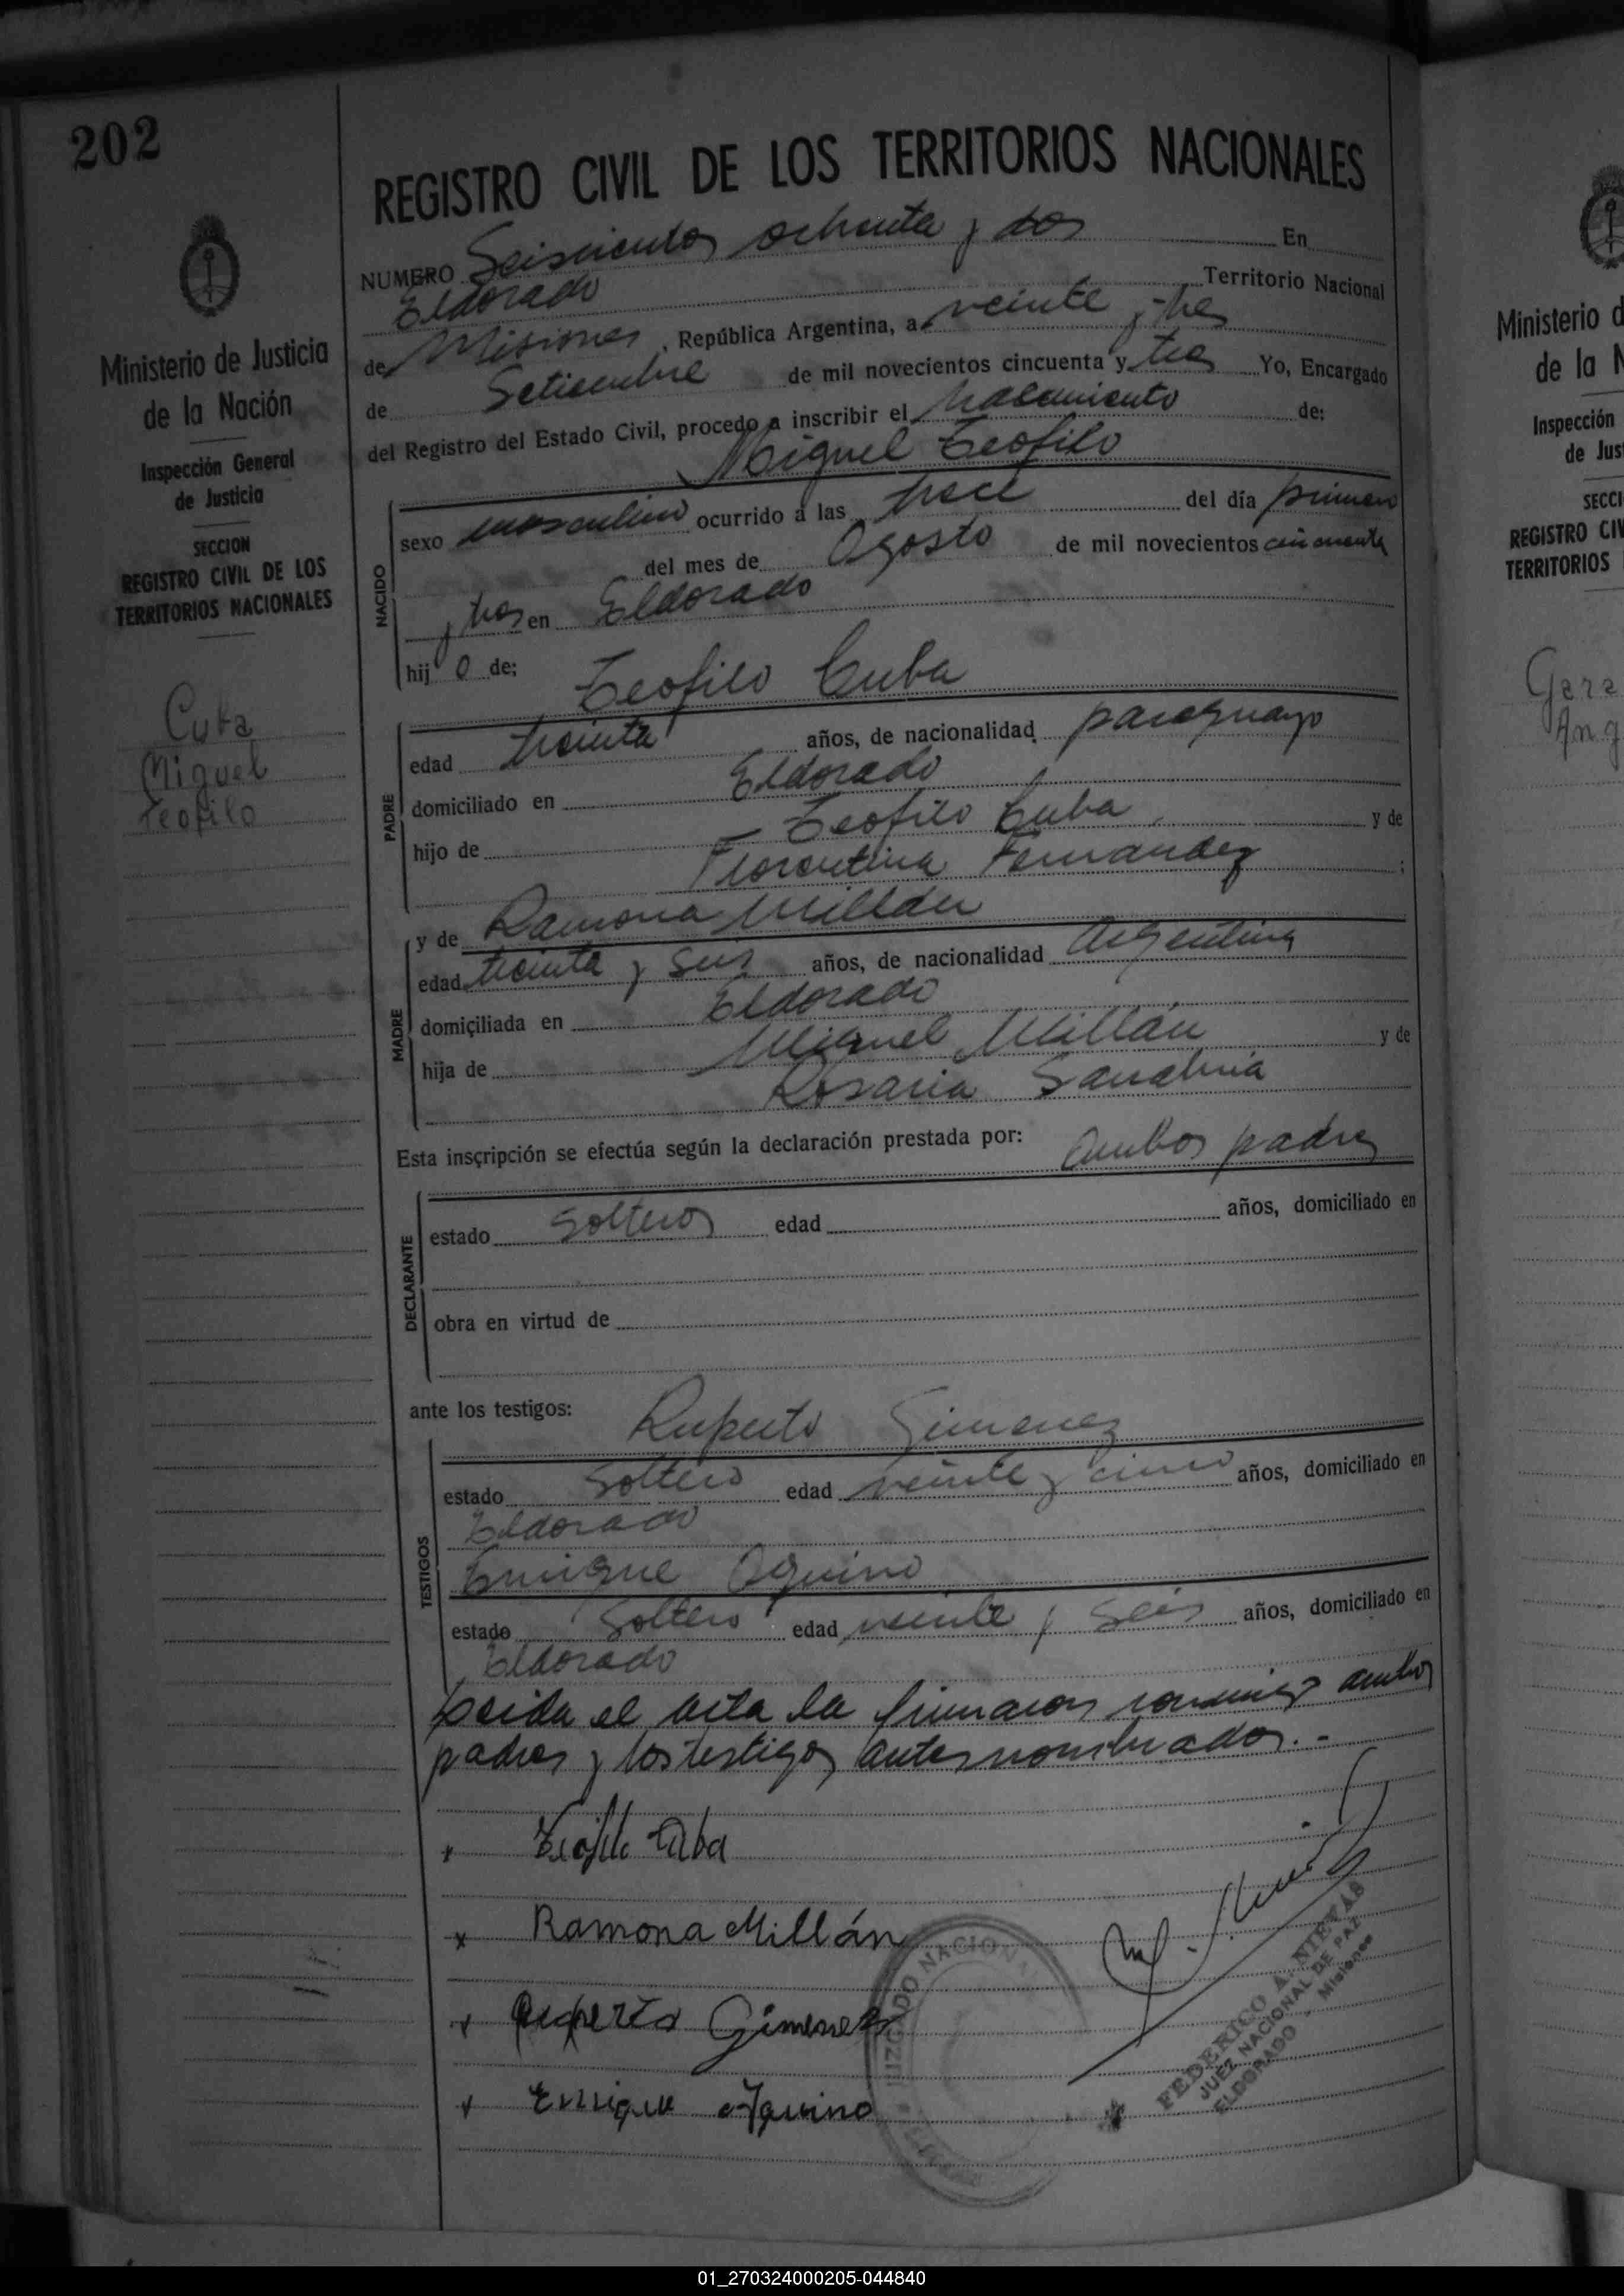 202
REGISTRO CIVIL DE LOS TERRITORIOS NACIONALES
NUMERO Seiscientos ochenta y dos En
Eldorado Territorio Nacional
de Misiones, República Argentina, a veinte y tres
de Setiembre de mil novecientos cincuenta y tres Yo, Encargado
del Registro del Estado Civil, procedo a inscribir el nacimiento de:
Miguel Teofilo
Ministerio de Justicia
de la Nación
Inspección General
de Justicia
SECCION
REGISTRO CIVIL DE LOS
TERRITORIOS NACIONALES
Cuba
Miguel
Teofilo
NACIDO
sexo masculino ocurrido a las trece del día primero
del mes de Agosto de mil novecientos cincuenta
y tres en Eldorado
hij o de:
Teofilo Cuba
PADRE
edad treinta años, de nacionalidad paraguayo
domiciliado en Eldorado
hijo de Teofilo Cuba y de
Florentina Fernandez ;
y de Ramona Millán
MADRE
edad treinta y seis años, de nacionalidad Argentina
domiciliada en Eldorado
hija de Miguel Millán y de
Rosaria Sanabria
Esta inscripción se efectúa según la declaración prestada por: Ambos padres
DECLARANTE
estado Solteros edad años, domiciliado en
obra en virtud de
ante los testigos:
Ruperto Gimenez
TESTIGOS
estado Soltero edad veinte y cinco años, domiciliado en
Eldorado
Enrique Aquino
estado Soltero edad veinte y seis años, domiciliado en
Eldorado
Leida el acta la firmaron conmigo ambos
padres y los testigos antes nombrados.-
x Teofilo Cuba
x Ramona Millán
x Ruperto Gimenez
x Enrique Aquino
JUZGADO NACIONAL
FEDERICO A. NIETAS
JUEZ NACIONAL DE PAZ
ELDORADO - Misiones
Ministerio d
de la N
Inspección
de Jus
SECCI
REGISTRO CIV
TERRITORIOS
Gara
Ang
01_270324000205-044840